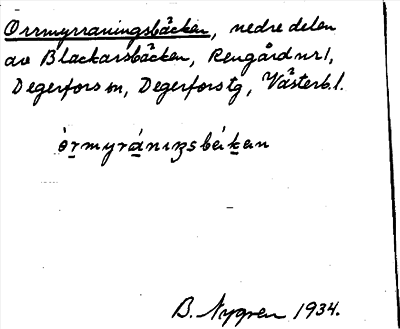 Orrmyrraningsbäcken, nedre delen
av Blackarsbäcken, Rengård nr 1,
Degerfors sn, Degerfors tg, Västerb. l.
B. Nygren 1934.